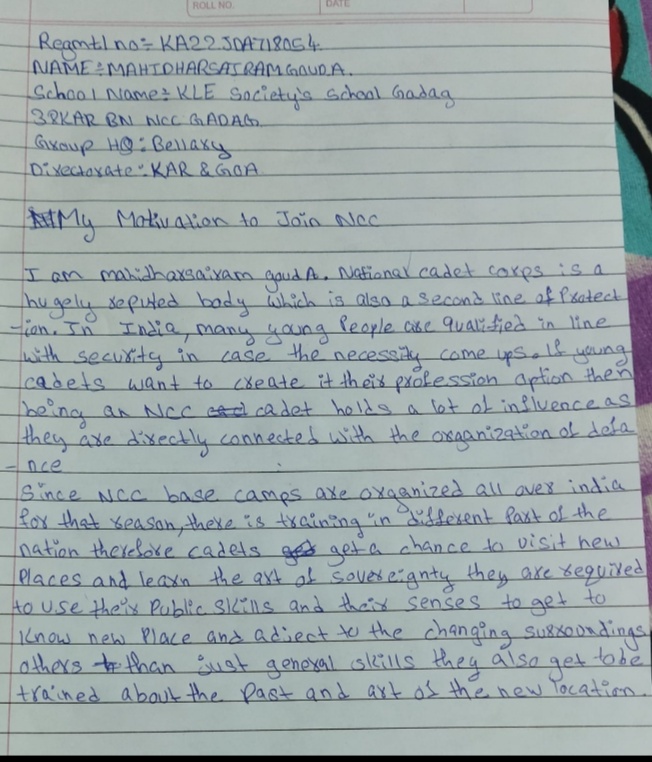 ROLL NO.
DATE
Regmtl no:- KA22JDA718054.
NAME:-MAHIDHARSAIRAMGOUDA.
School Name:- KLE Society's School Gadag
38KAR BN NCC GADAG
Group HQ:- Bellary
Directorate:- KAR & GOA
My Motivation to Join NCC
I am mahidharsairam goudA. National cadet corps is a
hugely reputed body which is also a second line of Protect
-ion. In India, many young People are qualified in line
with security in case the necessity come ups. If young
cadets want to create it their profession option then
being an NCC cadet holds a lot of influence as
they are directly connected with the organization of defa
-nce
Since NCC base camps are organized all over india
for that reason, there is training in different Part of the
nation therefore cadets get a chance to visit new
Places and learn the art of sovereignty they are required
to use their Public skills and their senses to get to
know new Place and adject to the changing surroundings
others than just general skills they also get tobe
trained about the Past and art of the new location.